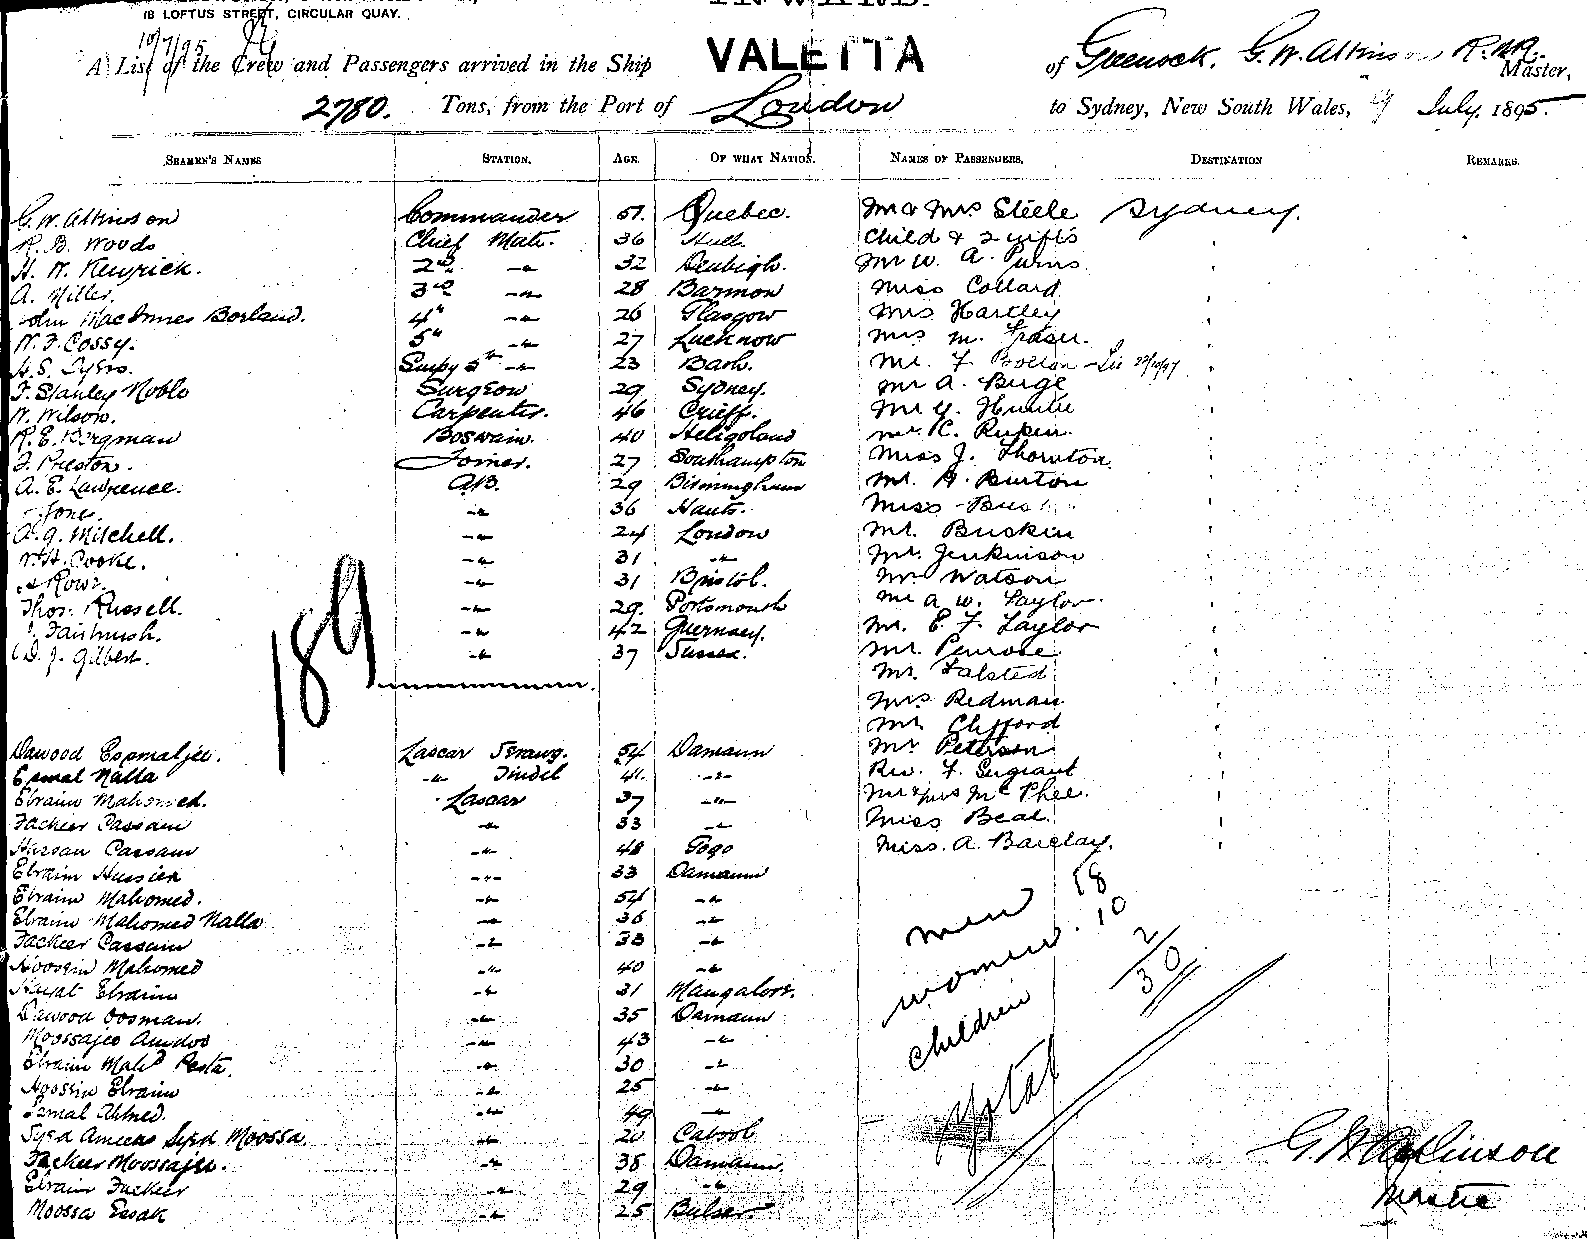 18 LOFTUS STREET, CIRCULAR QUAY.
10/7/95
A List of the Crew and Passengers arrived in the Ship VALETTA of Greenock, G. W. Atkinson R.N.R. Master,
2780. Tons, from the Port of London to Sydney, New South Wales, July, 1895.
SEAMEN'S NAMES STATION. AGE. OF WHAT NATION. NAMES OF PASSENGERS. DESTINATION REMARKS.
G. W. Atkinson Commander 51. Quebec. Mr & Mrs Steele Sydney.
R. B. Woods Chief Mate. 36 Hull Child & 2
H. W. Kenrick. 2nd -"- 32 Denbigh. Mr W. A.
A. Miller. 3rd -"- 28 Barmon Miss Collard
John MacInnes Borland. 4" -"- 26 Glasgow Mrs Hartley
W. F. Cossy. 5" -"- 27 Lucknow Mrs M. Fraser.
H. S. Tyers. 5th -"- 23 Bath. Mr. F
F. Stanley Noble Surgeon 29 Sydney. Mr A. Buge
W. Wilson. Carpenter. 46 Crieff. Mr G. Hunter
R. E. Bergman Boswain. 40 Heligoland Mr. K.
J. Preston. Joiner. 27 Southampton Miss J. Thornton
A. E. Lawrence. AB. 29 Birmingham Mr. H. Burton
Jone -"- 36 Hants. Miss
A. G. Mitchell. -"- 24 London Mr. Buskin
W. H. Cooke. -"- 31 -"- Mr. Jenkinson
Rowe -"- 31 Bristol. Mr Watson
Thos. Russell. -"- 29. Portsmouth Mr A. W. Taylor.
Fairbrush. -"- 42 Guernsey. Mr. E. F. Taylor
D. J. Gilbert. -"- 37 Sussex. Mr. Penrose
189
Mr. Falsted
Mrs Redman
Mr Clifford
Dawood Esmaljee. Lascar Serang. 54 Damaun Mr Peterson
Esmal Nalla -"- Tindel 41. -"- Rev. F. Sergeant
Ebraim Mahomed. Lascar 37 -"- Mr & Mrs McPhee.
Fackeer Cassam -"- 33 -"- Miss Beal.
Hassan Cassam -"- 48 Gogo Miss. A. Barclay.
Ebraim Hussien -"- 33 Damaun
Ebraim Mahomed. -"- 54 -"-
Ebraim Mahomed Nalla -"- 36 -"-
Fackeer Cassam -"- 33 -"-
Hoosein Mahomed -"- 40 -"-
Hayat Ebraim -"- 31 Mangalore.
Dawood Oosman. -"- 35 Damaun
Moossajee Amdoo -"- 43 -"-
Ebraim Mahd Pesta. -"- 30 -"-
Hoosein Ebraim -"- 25 -"-
Esmal Ahmed. -"- 49 -"-
Syed Ameeas Syed Moossa. -"- 20 Cabool
Fackeer Moossajee. -"- 38 Damaun.
Ebraim Fackeer -"- 29 -"-
Moossa Essak -"- 25 Bulsar.
men 18
women. 10
children 2
Total 30
G. W. Atkinson
Master